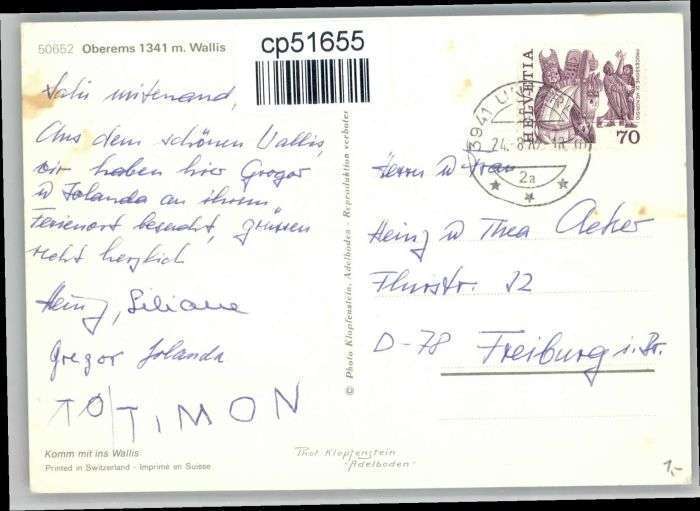 50652 Oberems 1341 m. Wallis
cp51655
HELVETIA
70
3941
24.-8.
2a
Salü mitenand,
Aus dem schönen Wallis,
wir haben hier Gregor
u Jolanda an ihrem
Ferienort besucht, grüssen
recht herzlich
Heinz, Liliane
Gregor Jolanda
TO/TIMON
Komm mit ins Wallis
Printed in Switzerland - Imprimé en Suisse
© Photo Klopfenstein, Adelboden - Reproduktion verboten
Phot. Klopfenstein
Adelboden
Herrn u Frau
Heinz u Thea Acker
Flurstr. 22
D-78 Freiburg i. Br.
1,-